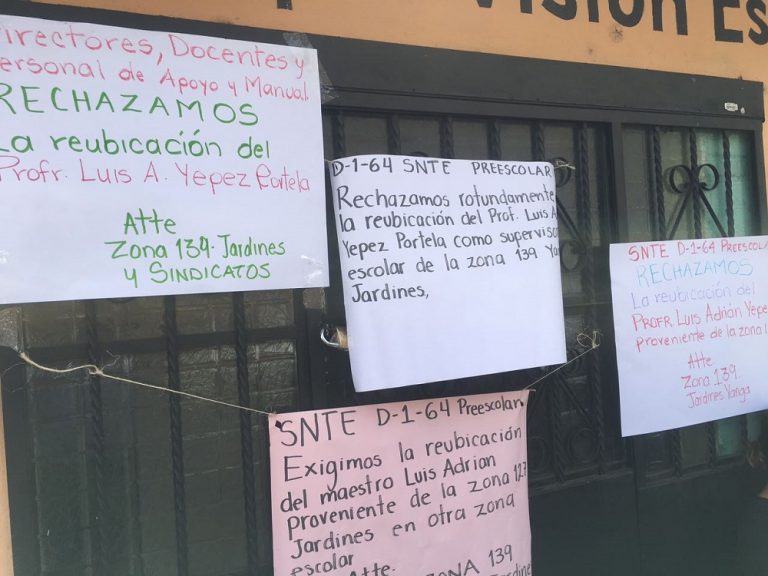 visión Es
Directores, Docentes y
Personal de Apoyo y Manual
RECHAZAMOS
La reubicación del
Profr. Luis A. Yepez Portela
Atte
Zona 134. Jardines
y SINDICATOS
D-1-64 SNTE PREESCOLAR
Rechazamos rotundamente
la reubicación del Prof. Luis A
Yepez Portela como supervisor
escolar de la zona 139 Ya
Jardines,
SNTE D-1-64 PREESCOLA
RECHAZAMOS
La reubicación del
PROFR. LUIS ADRIÁN YEPE
proveniente de la zona 1
Atte
Zona 139.
Jardines Yanga
SNTE D-1-64 Preescolar.
Exigimos la reubicación
del maestro Luis Adrian
proveniente de la zona 127
Jardines en otra zona
escolar
Atte. ZONA 139